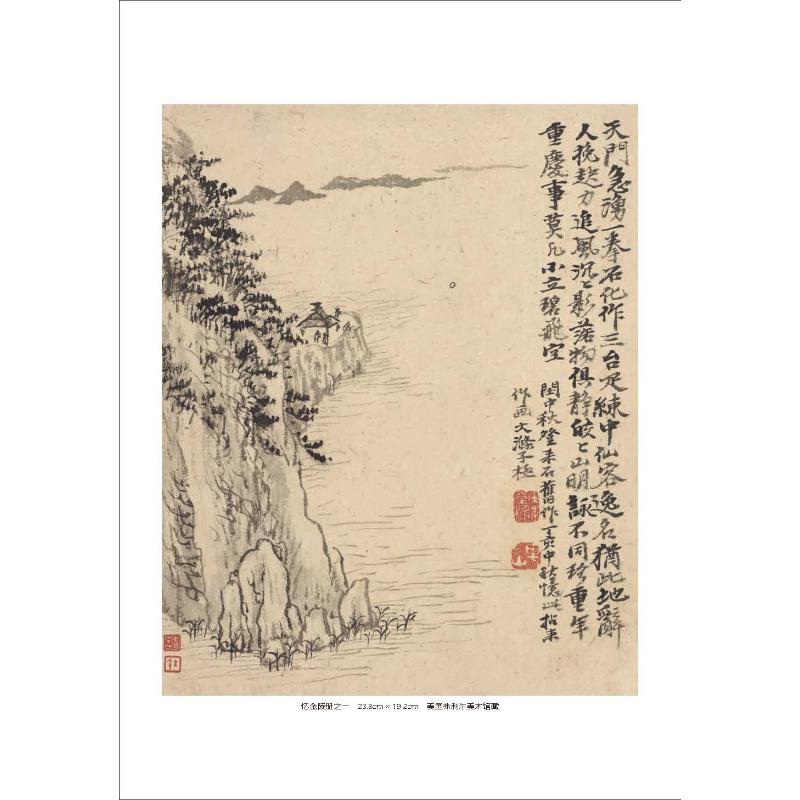 天門急湧一拳石化作三台疋練中仙客逸名猶此地辭
人挽起力追風沉〻影落物俱靜皎〻山明詠不同珍重年
重慶事莫凡小立碧飛空
閏中秋登采石舊作丁亥中秋憶此拈来
作画大滌子極
忆金陵册之一 23.8cm × 19.2cm 美国弗利尔美术馆藏